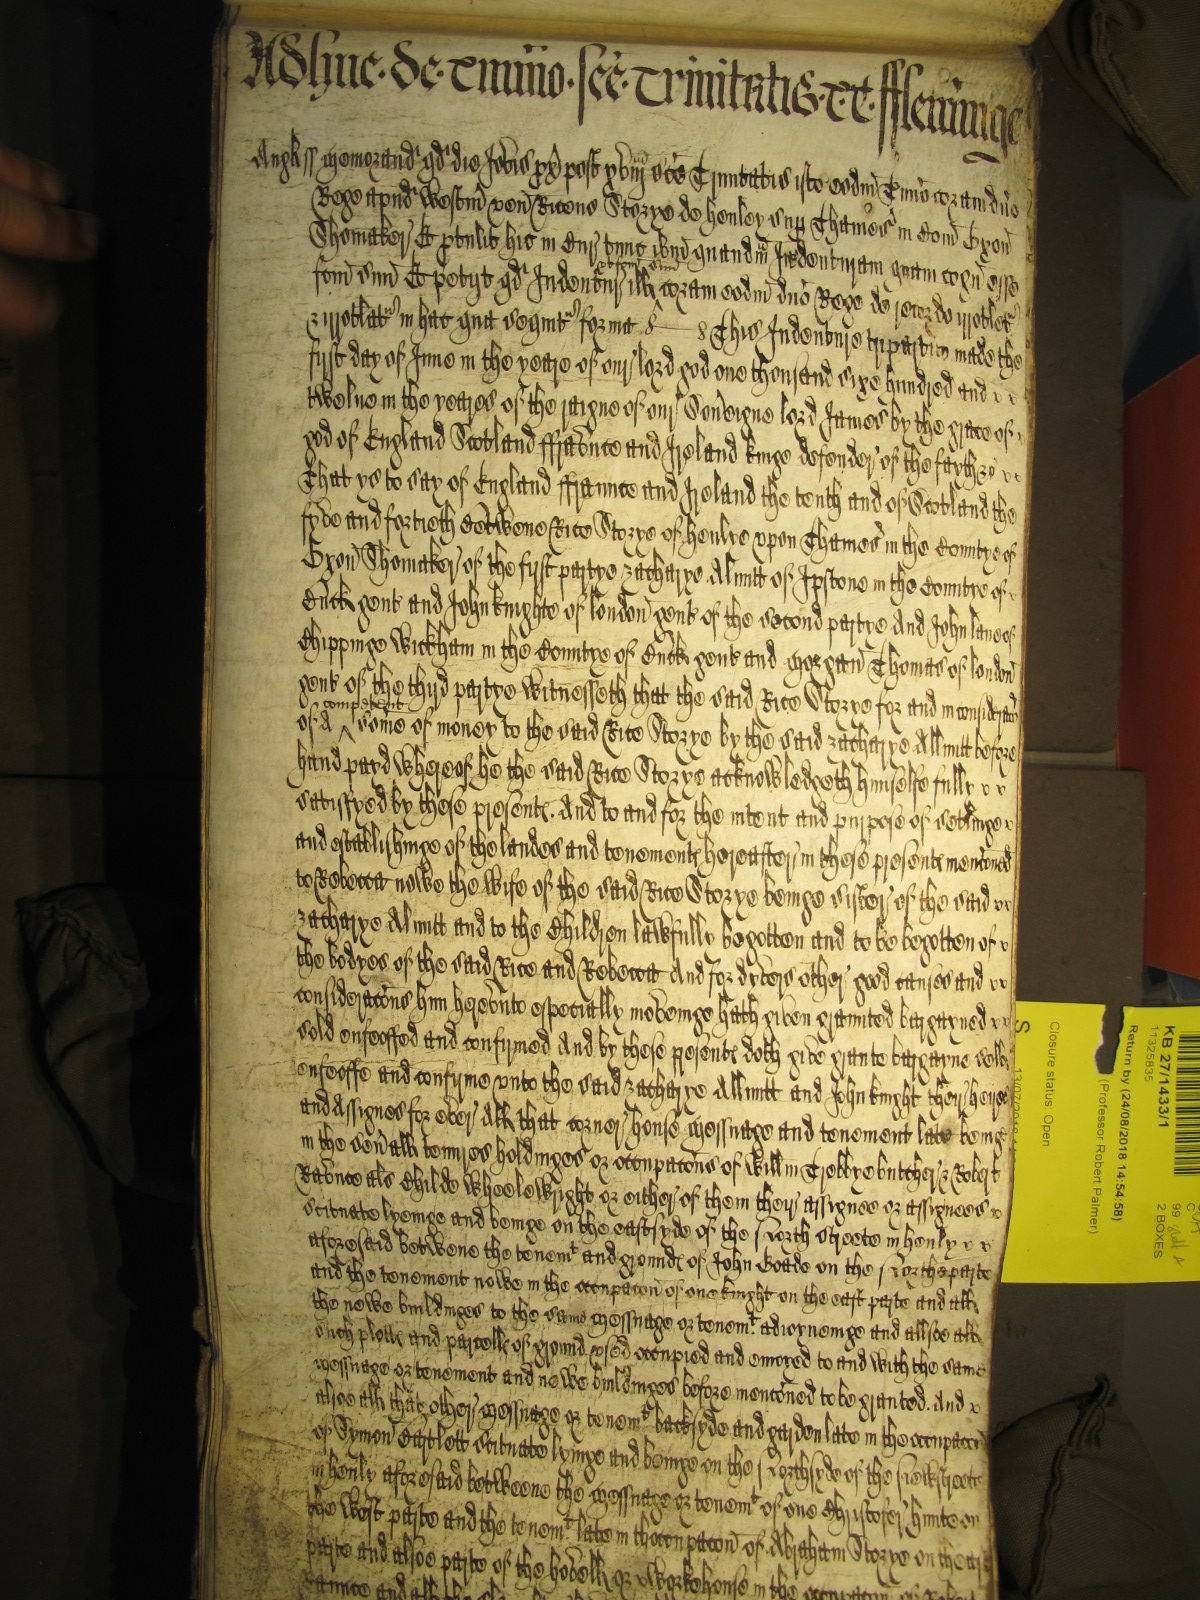 Adhuc de Termino sce Trinitatis
Angl ss Memorand qd die Jovis px post xviij sce Trinitatis isto eodm Tmio coram dno
Rege apud Westm ven Riceus Storye de henley sup Thames in Com Oxon
Shomaker Et ptulit hic in Cur tunc ibm quandm Indenturam quam cogn esse
fcm suu Et petijt qd Indentur ill coram eodm dno Rege de recordo irrotlet
& irrotlat in hac que sequit forma This Indenture tripartite made the
first day of June in the yeare of our lord god one thousand sixe hundred and
twelue in the yeares of the raigne of our Sov'aigne lord James by the grace of
god of England Scotland ffraunce and Ireland kinge defender of the fayth &c
That ys to say of England ffraunce and Ireland the tenth and of Scotland the
fyve and fortieth Betwene Rice Storye of henlye vpon Thames in the Countye of
Oxon Shomaker of the first partye zacharye Allnutt of Ipstone in the Countye of
Buck gent and John knighte of london gent of the second partye And John lane of
Chippinge Wickham in the Countye of Buck gent and Morgan Thomas of london
gent of the third partye Witnesseth that the said Rice Storye for and in consideracon
competent
of A some of money to the said Rice Storye by the said zacharye Allnutt before
hand payd whereof he the said Rice Storye acknowledgeth himselfe fully
satisfyed by these presente. And to and for the intent and purpose of setlinge
and establishinge of the landes and tenemente hereafter in these presente menconed
to Rebecca nowe the wife of the said Rice Storye beinge sister of the said
zacharye Allnutt and to the Children lawfully begotten and to be begotten of
the bodyes of the said Rice and Rebecca And for dyvers other good causes and
consideracons him herevnto especially moveinge hath given graunted bargayned
sold enfeoffed and confirmed And by these presente doth give graunte bargayne sell
enfeoffe and confirme vnto the said zacharye Allnutt and John knight their heires
and Assignes for ever All that corner house Messuage and tenement late beinge
in the sev'all tenures holdinges or occupacons of Willm Trebbye butcher & Robert
Raunce als Childe wheelewright or either of them their assignee or assignees
scituate lyeinge and beinge on the east syde of the North streete in henly
aforesaid betwene the tenemt and grounde of John Goade on the North parte
and the tenement nowe in the occupacon of one knight on the east parte and all
the newe buildinges to the same Messuage or tenemt adioyneinge and allsoe all
such plotte and parcelle of ground vsed occupied and enioyed to and with the same
Messuage or tenement and newe buildinges before menconed to be granted. And
alsoe all that other Messuage or tenemt backsyde and garden late in the occupacon
of Symon Bartlett scituate lyinge and beinge on the Northsyde of the streete
in henly aforesaid betweene the Messuage or tenemt of one Christofer hunte on
the West parte and the tenemt late in thoccupacon of Abraham Storye on the east
parte and alsoe parte of the or Workehouse in the occupacon of Robert
Raunce and all the
KB 27/1433/1
11325835
2 BOXES
Return by (24/08/2018 14:54:58)
(Professor Robert Palmer)
Closure status: Open
S